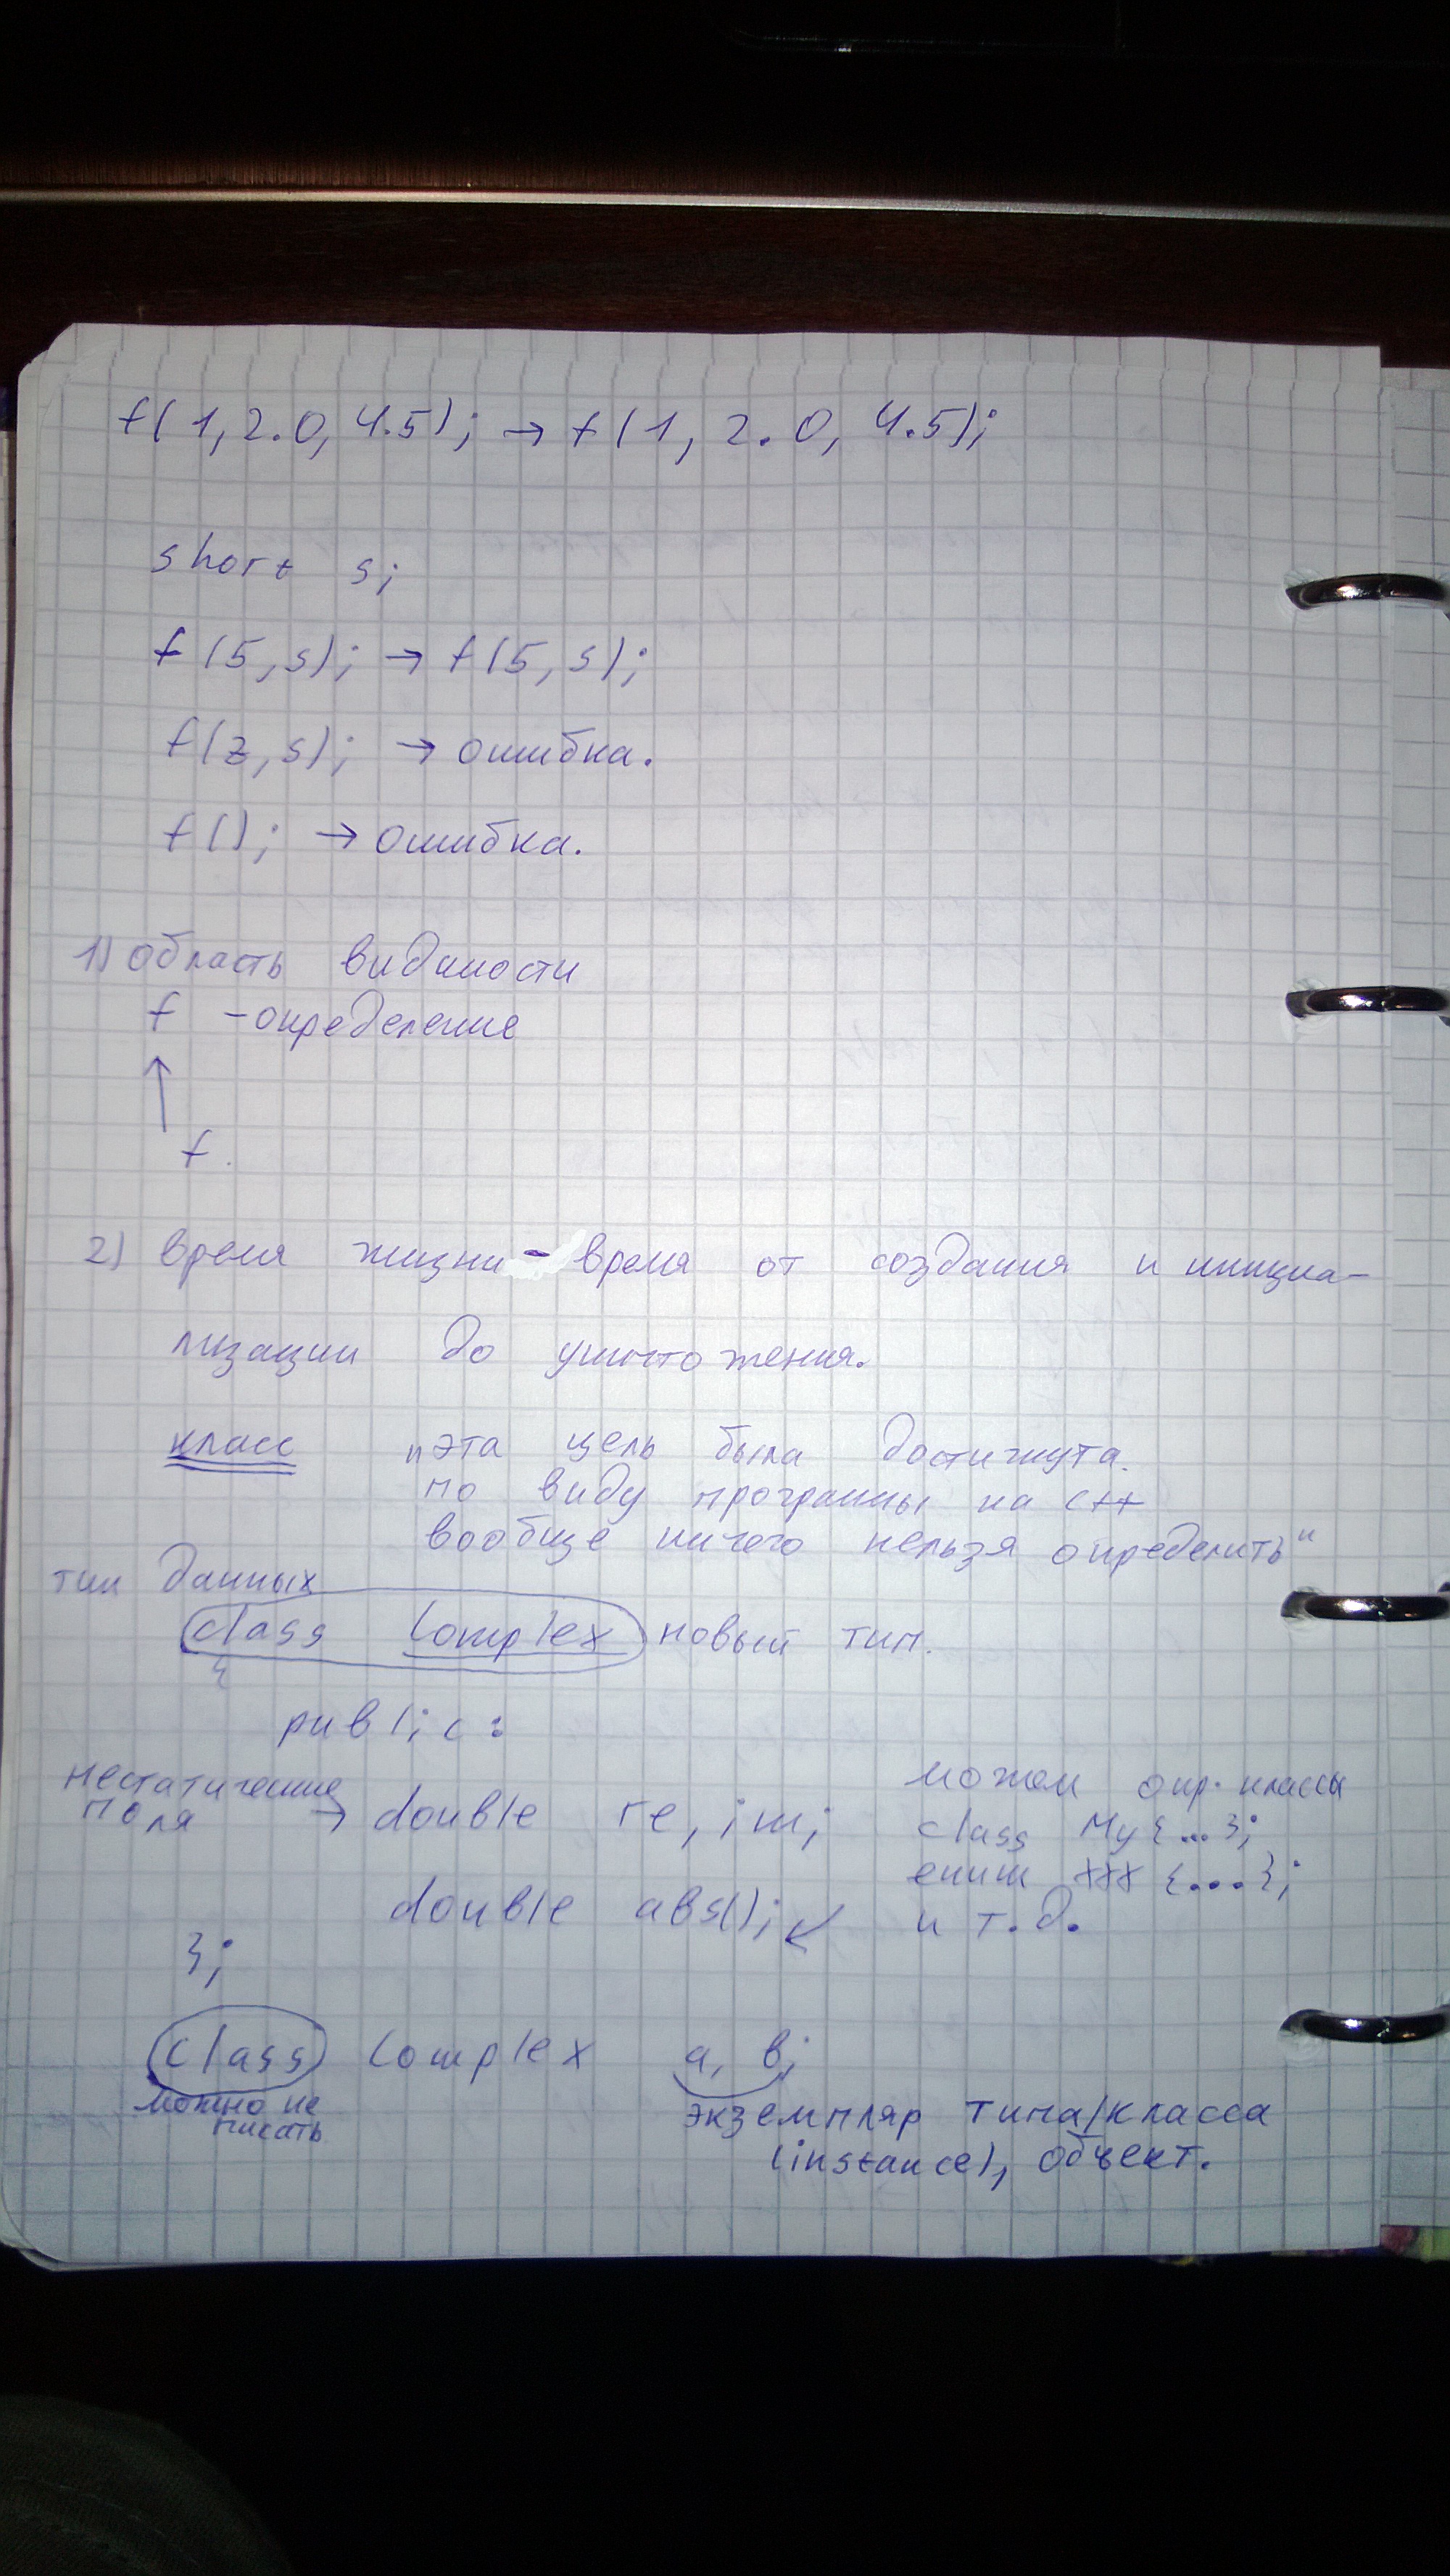 f(1, 2.0, 4.5); → f(1, 2.0, 4.5);
short s;
f(5, s); → f(5, s);
f(z, s); → ошибка.
f(); → ошибка.
1) Область видимости
f - определение
↑
f.
2) Время жизни - время от создания и инициа-
лизации до уничтожения.
класс "эта цель была достигнута.
по виду программы на C++
вообще ничего нельзя определить"
тип данных
class Complex новый тип.
{
public:
нестатические
поля → double re, im;
можем опр. классы
class My {...};
enum XXX {...};
и т.д.
double abs(); ↙
};
class Complex a, b;
можно не
писать
экземпляр типа/класса
(instance), объект.